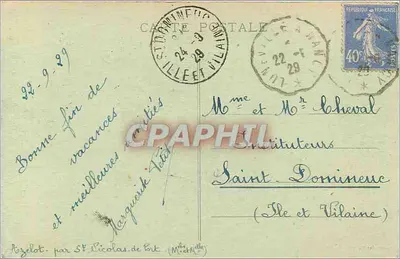 CARTE POSTALE
ST DOMINEUC
24 -9
29
ILLE ET VILAINE
LUNEVILLE A NANCY
22 -
29
REPUBLIQUE FRANCAISE
40c
22-9.29
Bonne fin de
vacances
et meilleures amitiés
Marguerite
CPAPHIL
Mme et Mr Cheval
Instituteurs
Saint Domineuc
(Ile et Vilaine)
Azelot. par St Nicolas de Port